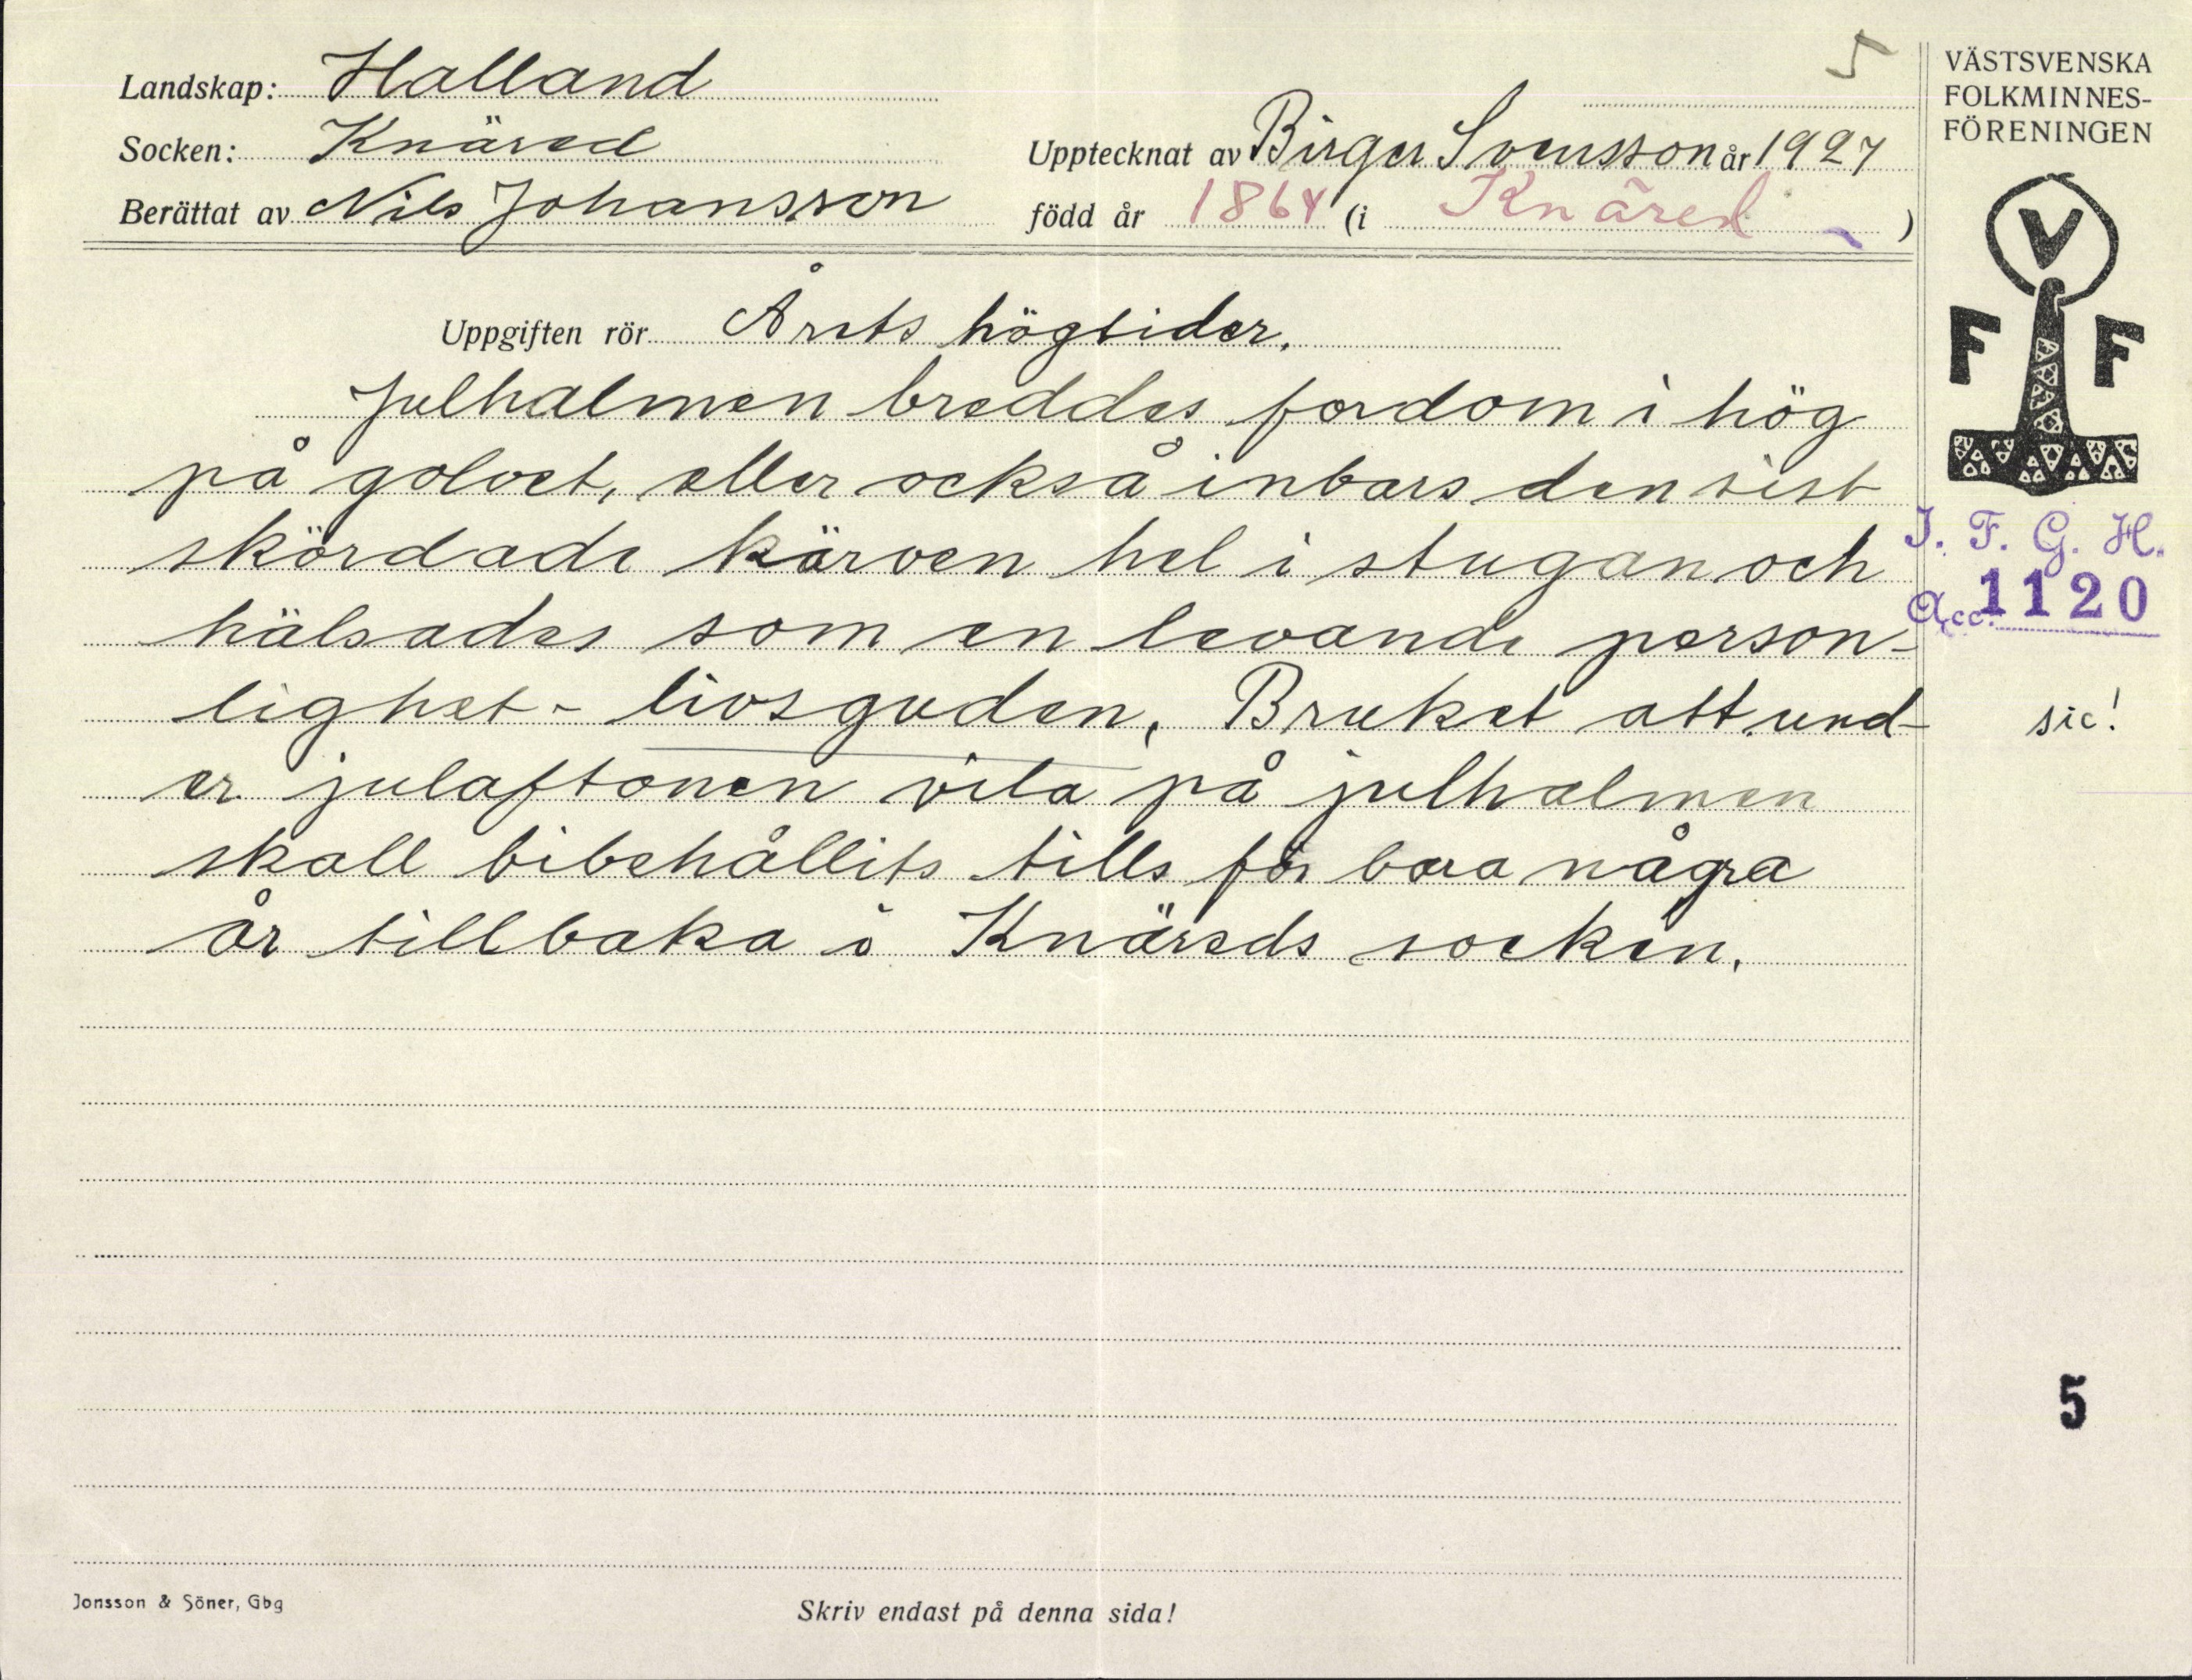 5
Landskap: Halland
Socken: Knäred
Upptecknat av Birger Svensson år 1927
Berättat av Nils Johansson
född år 1864 (i Knäred )
VÄSTSVENSKA
FOLKMINNES-
FÖRENINGEN
V
F F
Uppgiften rör Årets högtider.
Julhalmen breddes fordom i hög
på golvet, eller också inbars den sist
skördade kärven hel i stugan och
hälsades som en levande person-
lighet - livsguden. Bruket att und-
er julaftonen vila på julhalmen
skall bibehållits tills för bara några
år tillbaka i Knäreds socken.
I. F. G. H.
Acc. 1120
sic!
5
Jonsson & Söner, Gbg
Skriv endast på denna sida!